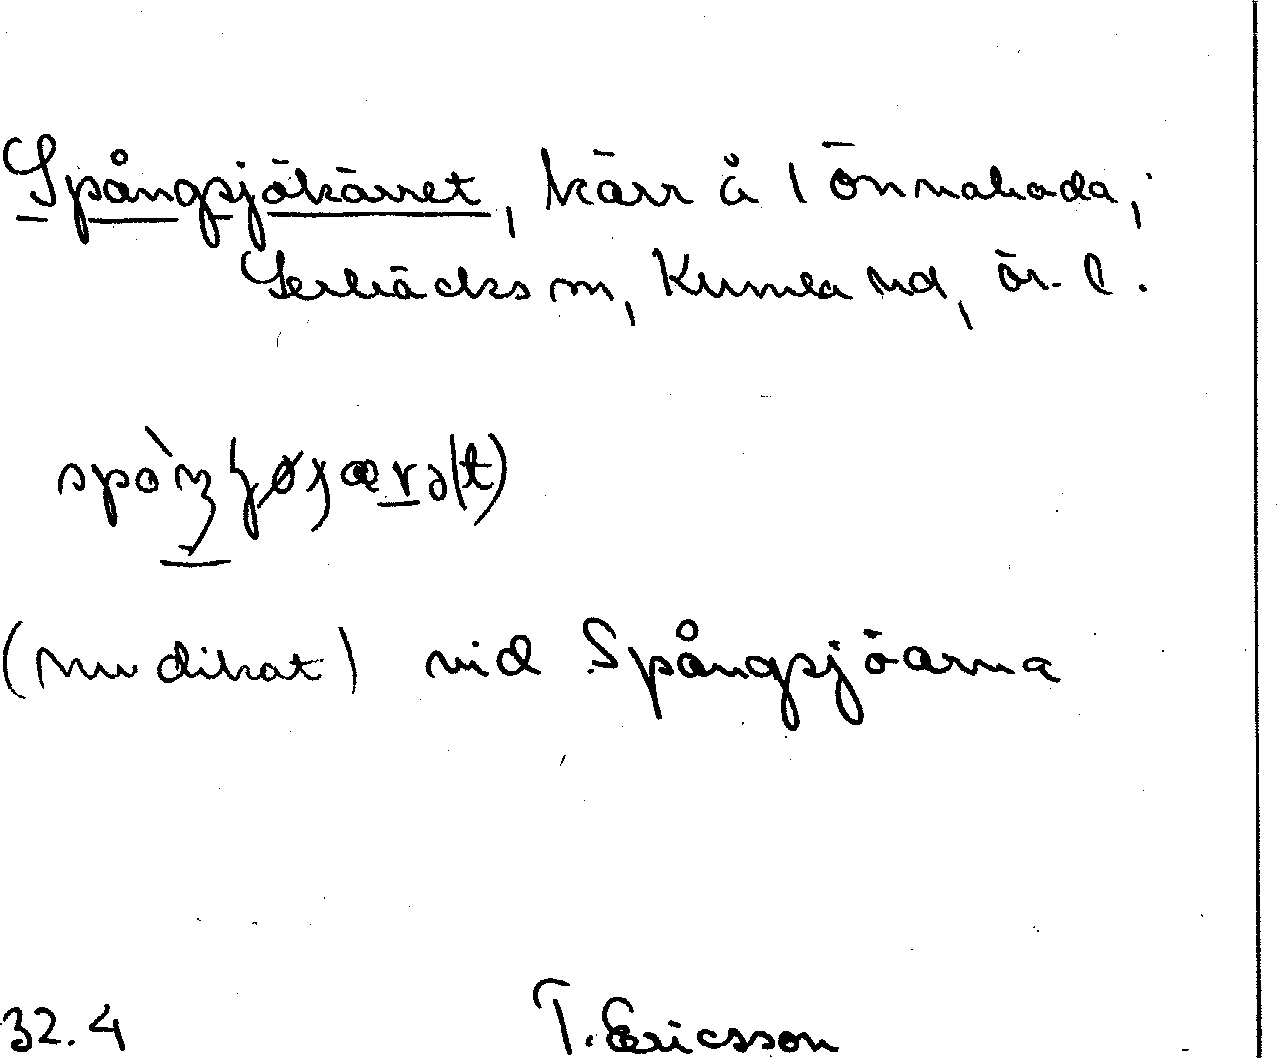 Spångsjökärret, kärr å Tönnakada,
Lerbäcks sn, Kumla hd, Ör. l.
(nu dikat) vid Spångsjöarna
32.4 T. Ericsson